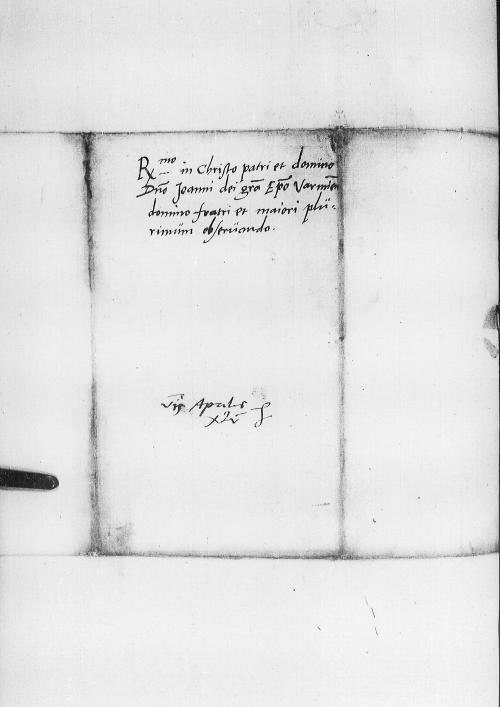 Rmo in Christo patri et domino
Dno Joanni dei gra Epo Varmien
domino fratri et maiori plu-
rimum obseruando.
Aprilis